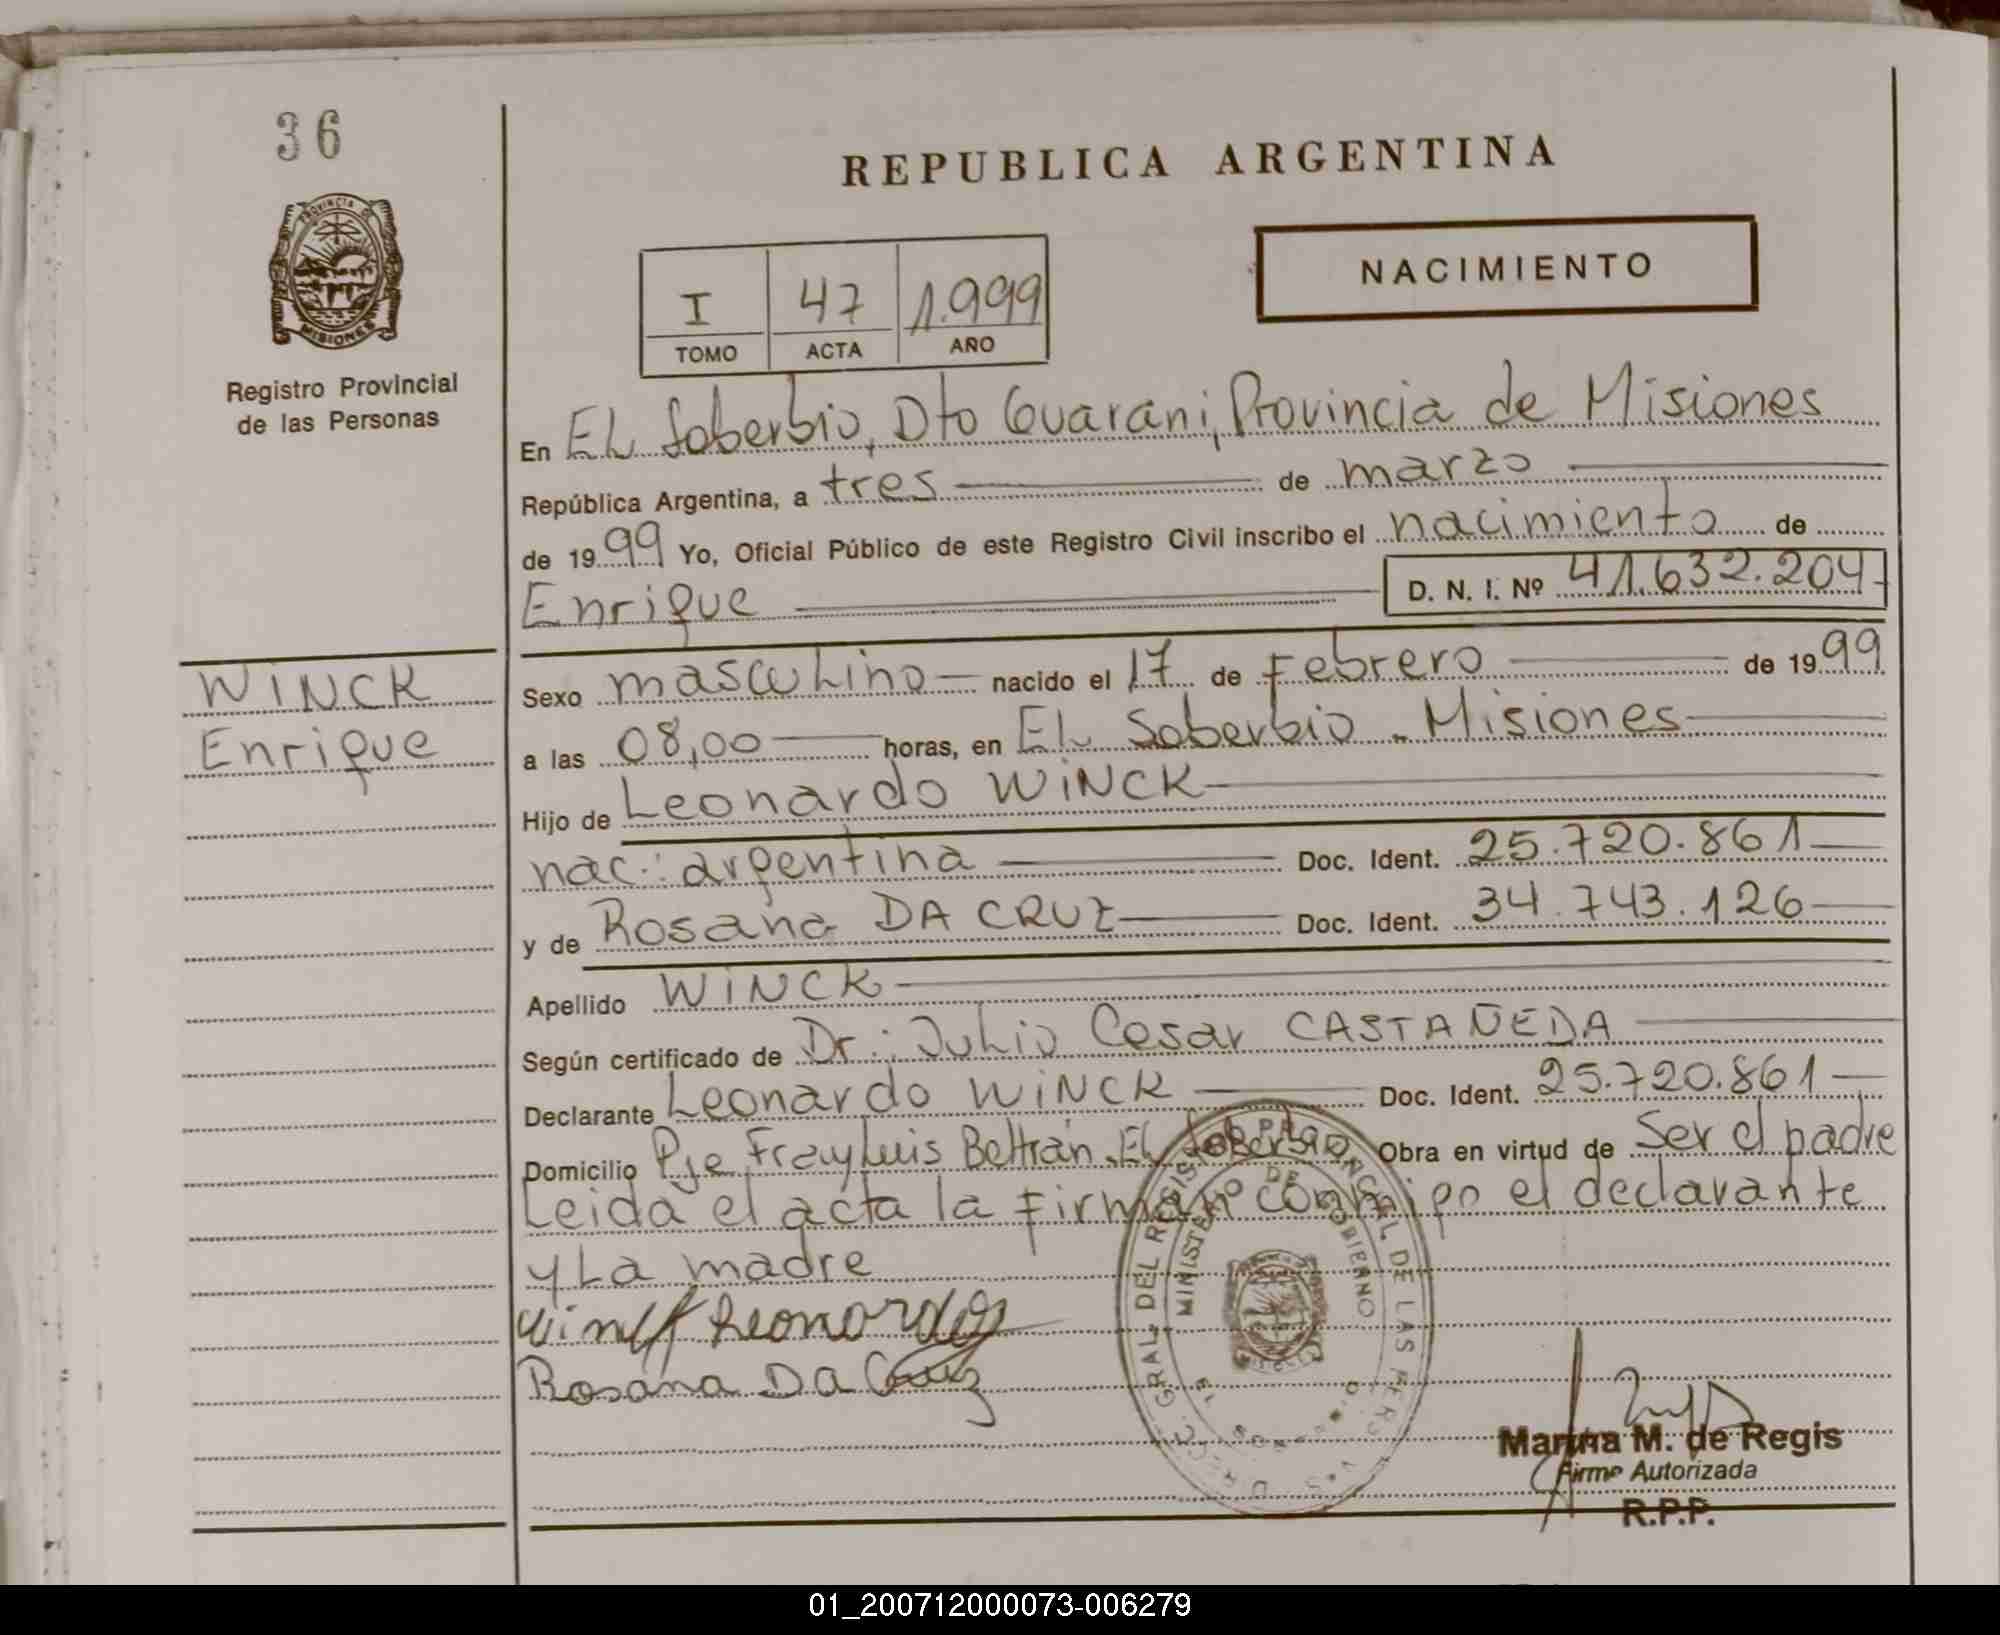 36
PROVINCIA DE
MISIONES
Registro Provincial
de las Personas
WINCK
Enrique
REPUBLICA ARGENTINA
NACIMIENTO
I 47 1.999
TOMO ACTA AÑO
En EL Soberbio, Dto Guarani, Provincia de Misiones
República Argentina, a tres de marzo
de 1999 Yo, Oficial Público de este Registro Civil inscribo el nacimiento de
Enrique D. N. I. Nº 41.632.204
Sexo masculino nacido el 17 de Febrero de 1999
a las 08,00 horas, en EL Soberbio - Misiones
Hijo de Leonardo WINCK
nac: argentina Doc. Ident. 25.720.861
y de Rosana DA CRUZ Doc. Ident. 34.743.126
Apellido WINCK
Según certificado de Dr: Julio Cesar CASTAÑEDA
Declarante Leonardo WINCK Doc. Ident. 25.720.861
Domicilio Pje Fray Luis Beltrán. EL Soberbio Obra en virtud de Ser el padre
Leida el acta la Firman conmigo el declarante
y La madre
Winck Leonardo
Rosana DA Cruz
GRAL. DEL REGISTRO PROVINCIAL DE LAS PERSONAS
MINISTERIO DE GOBIERNO
Marina M. de Regis
Firma Autorizada
R.P.P.
01_200712000073-006279